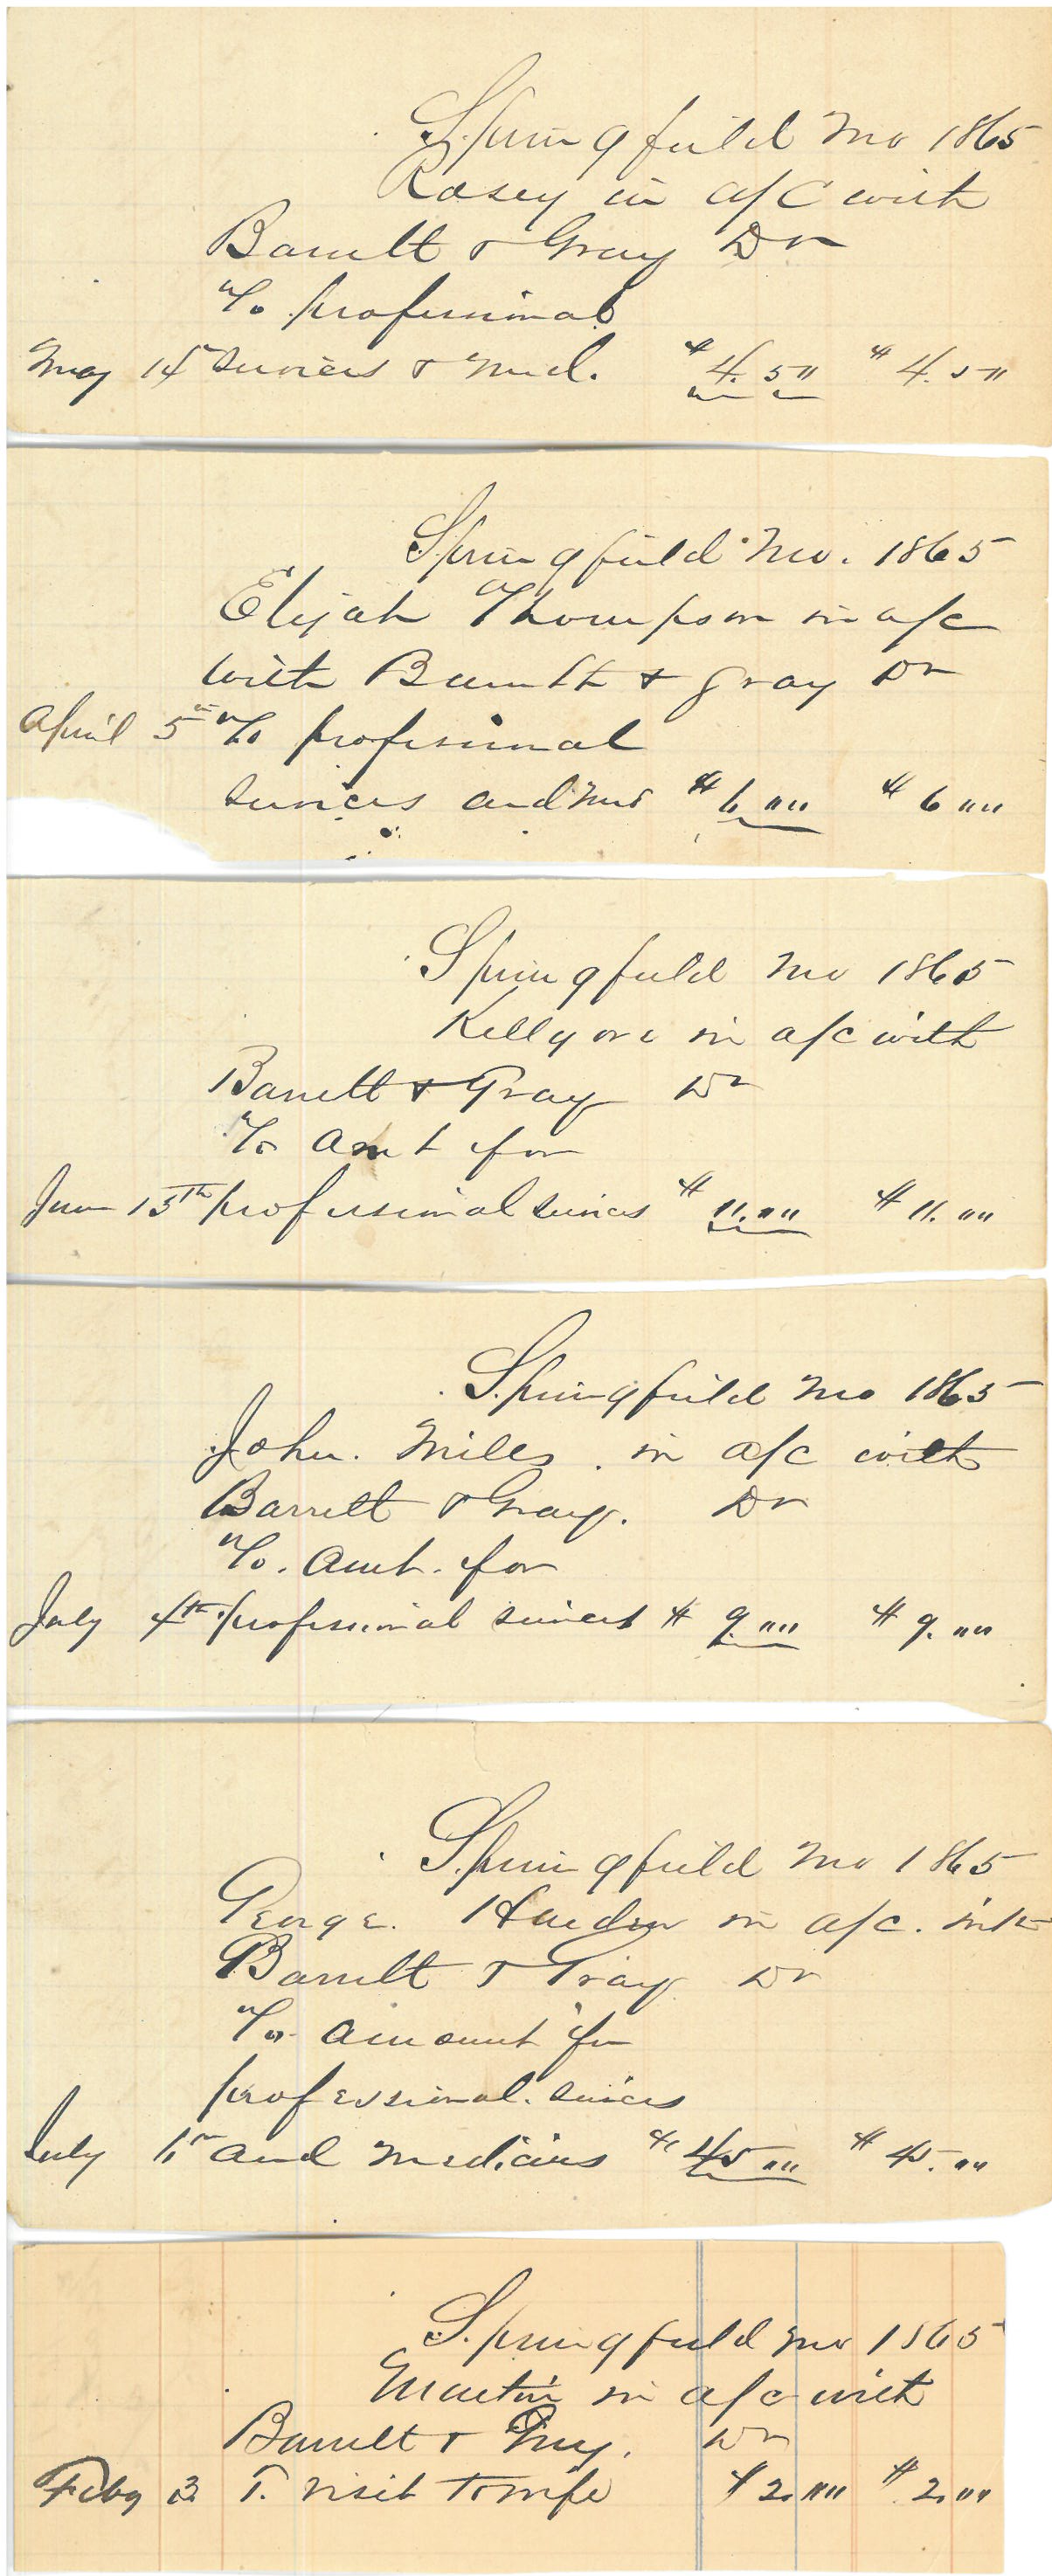 Springfield Mo 1865
Rasey in a/c with
Barrett & Gray Dr
To professional
May 15 Services & Med. $4.5" $4.5"
Springfield Mo. 1865
Elijah Thompson in a/c
with Barrett & Gray Dr
April 5th To professional
Services and Med $6 "" $6 ""
Springfield Mo 1865
Kellgore in a/c with
Barrett & Gray Dr
To Amt for
June 15th professional Services $11."" $11.""
Springfield Mo 1865
John. Miles. in a/c with
Barrett & Gray. Dr
To. Amt. for
July 4th professional services $9."" $9.""
Springfield Mo 1865
George. in a/c. with
Barrett & Gray Dr
To amount for
professional. Services
July 6th and Medicines $45 "" $45.""
Springfield Mo 1865
Martin in a/c with
Barrett & Gray. Dr
Feby 3 T. visit to wife $2."" $2.""